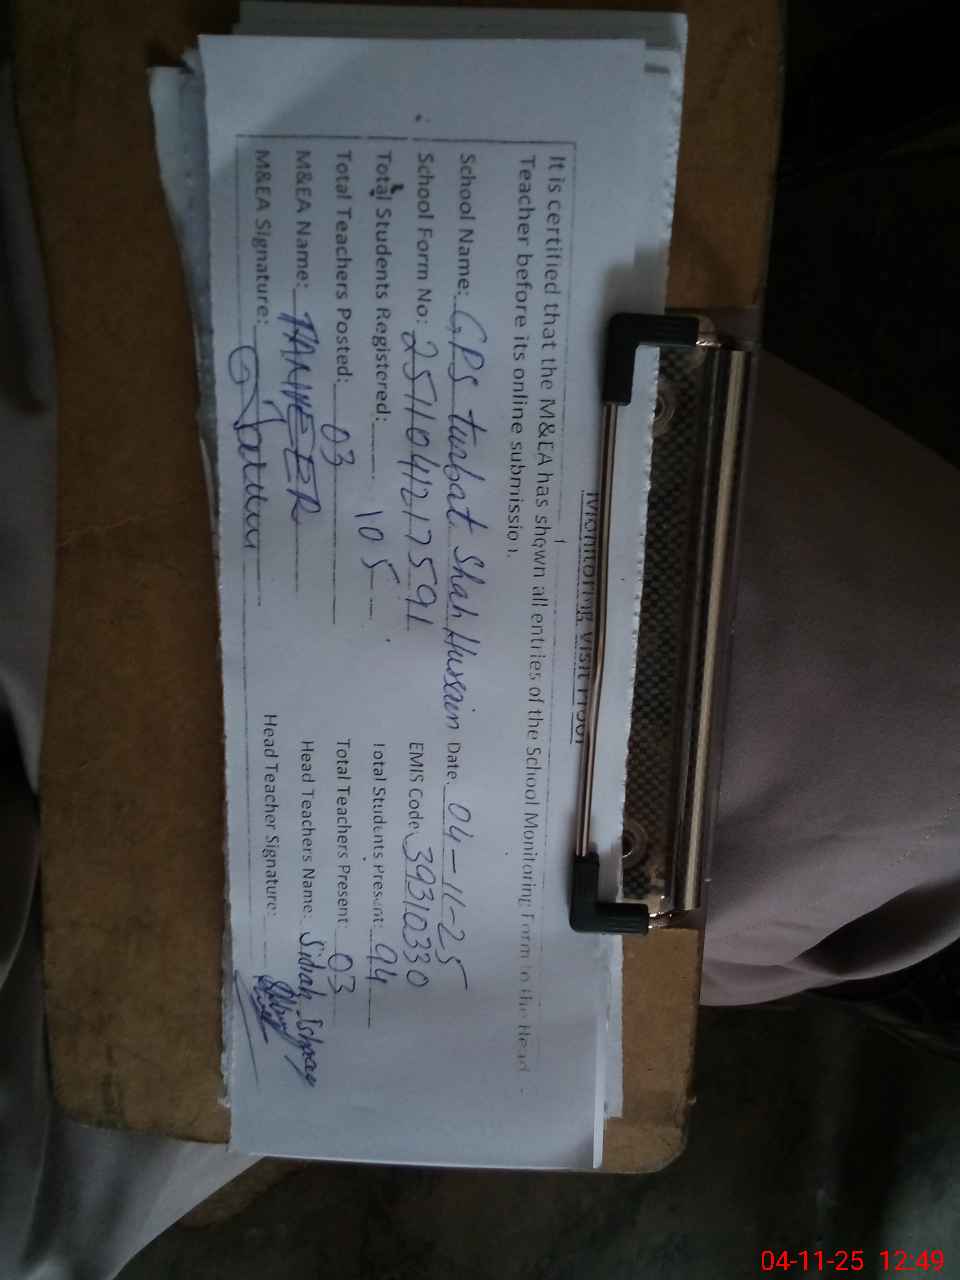 Monitoring Visit Proof
It is certified that the M&EA has shown all entries of the School Monitoring Form to the Head
Teacher before its online submission.
School Name: GPS turbat Shah Hussain Date: 04-11-25
School Form No: 2511041217591 EMIS Code 39310330
Total Students Registered: 105 Total Students Present: 94
Total Teachers Posted: 03 Total Teachers Present 03
M&EA Name: TANVEER Head Teachers Name: Sidrah Ishpaq
M&EA Signature: Head Teacher Signature:
04-11-25 12:49